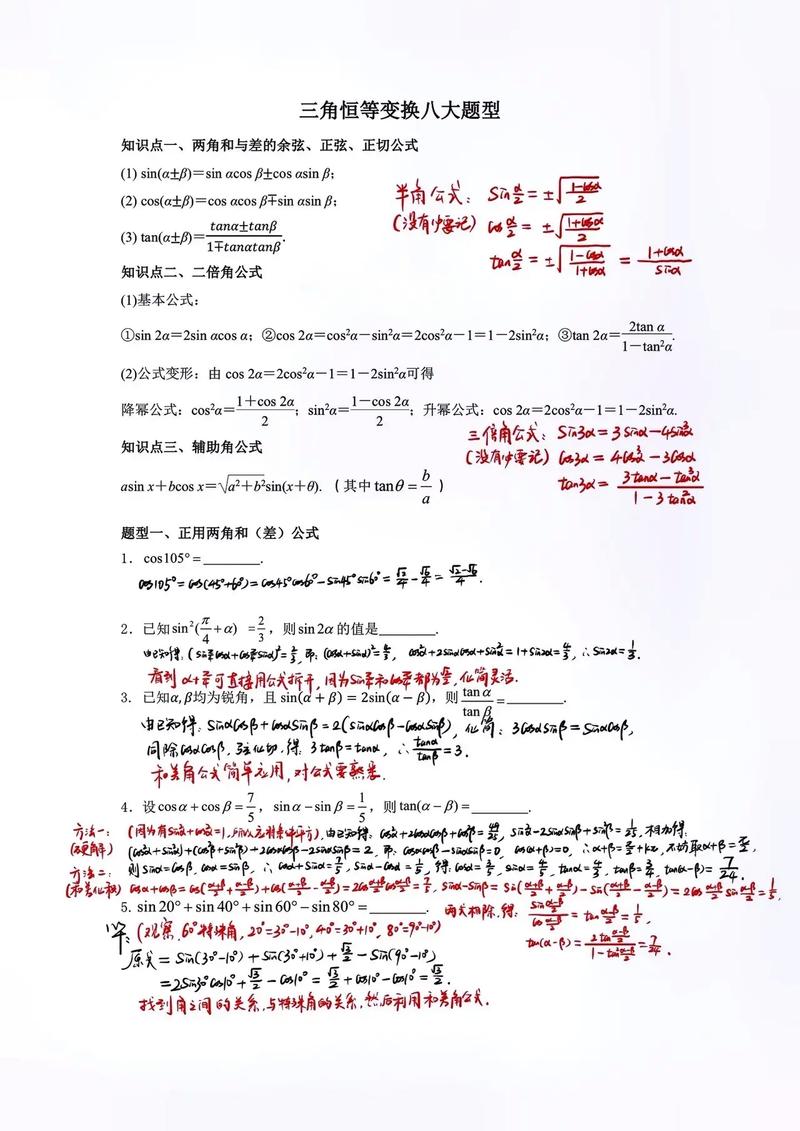 三角恒等变换八大题型
知识点一、两角和与差的余弦、正弦、正切公式
(1) sin(α±β)=sin αcos β±cos αsin β;
(2) cos(α±β)=cos αcos β∓sin αsin β;
(3) tan(α±β)=(tanα±tanβ)/(1∓tanαtanβ).
半角公式: sin α/2 = ±√((1-cosα)/2)
(没有必要记) cos α/2 = ±√((1+cosα)/2)
tan α/2 = ±√((1-cosα)/(1+cosα)) = (1+cosα)/sinα
知识点二、二倍角公式
(1)基本公式:
①sin 2α=2sin αcos α; ②cos 2α=cos²α-sin²α=2cos²α-1=1-2sin²α; ③tan 2α=2tan α/(1-tan²α).
(2)公式变形: 由 cos 2α=2cos²α-1=1-2sin²α可得
降幂公式: cos²α=(1+cos 2α)/2; sin²α=(1-cos 2α)/2; 升幂公式: cos 2α=2cos²α-1=1-2sin²α.
知识点三、辅助角公式
asin x+bcos x=√(a²+b²)sin(x+θ). (其中 tanθ = b/a )
三倍角公式: sin3α = 3sinα-4sin³α
(没有必要记) cos3α = 4cos³α-3cosα
tan3α = (3tanα-tan³α)/(1-3tan²α)
题型一、正用两角和(差)公式
1. cos105°=________.
cos105°=cos(45°+60°)=cos45°cos60°-sin45°sin60°=√2/4-√6/4=(√2-√6)/4.
2. 已知sin²(π/4+α) =2/3, 则sin2α的值是________.
由已知得, (sinπ/4cosα+cosπ/4sinα)²=2/3, 即: (cosα+sinα)²=4/3, cos²α+2sinαcosα+sin²α=1+sin2α=4/3, ∴sin2α=1/3.
看到α+π/4可直接用公式拆开, 因为sinπ/4和cosπ/4都为√2/2, 化简灵活.
3. 已知α,β均为锐角, 且 sin(α+β)=2sin(α-β), 则 tanα/tanβ=________.
由已知得: sinαcosβ+cosαsinβ=2(sinαcosβ-cosαsinβ), 化简: 3cosαsinβ=sinαcosβ,
同除cosαcosβ, 弦化切, 得: 3tanβ=tanα, ∴tanα/tanβ=3.
和差角公式简单应用, 对公式要熟悉.
4. 设cosα+cosβ=7/5, sinα-sinβ=1/5, 则tan(α-β)=________.
方法一: (因为有sin²α+cos²α=1, 所以志到条件平方), 由已知得: cos²α+2cosαcosβ+cos²β=49/25, sin²α-2sinαsinβ+sin²β=1/25, 相加得:
(硬解) (cos²α+sin²α)+(cos²β+sin²β)+2cosαcosβ-2sinαsinβ=2, 即: cosαcosβ-sinαsinβ=0, cos(α+β)=0, ∴α+β=π/2+kπ, 不妨取α+β=π/2,
则sinα=cosβ, cosα=sinβ, ∴cosα+sinα=7/5, sinα-cosα=1/5, 得: cosα=3/5, sinα=4/5, tanα=4/3, tanβ=3/4, tan(α-β)=7/24.
方法二:
(和差化积) cosα+cosβ=cos((α+β)/2+(α-β)/2)+cos((α+β)/2-(α-β)/2)=2cos(α+β)/2cos(α-β)/2=7/5, sinα-sinβ=sin((α+β)/2+(α-β)/2)-sin((α+β)/2-(α-β)/2)=2cos(α+β)/2sin(α-β)/2=1/5,
两式相除, 得: sin(α-β)/2/cos(α-β)/2=tan(α-β)/2=1/5,
tan(α-β)=2tan(α-β)/2/(1-tan²(α-β)/2)=7/24.
5. sin20°+sin40°+sin60°-sin80°=________.
解: (观察, 60°特殊角, 20°=30°-10°, 40°=30°+10°, 80°=90°-10°)
原式=sin(30°-10°)+sin(30°+10°)+√3/2-sin(90°-10°)
=2sin30°cos10°+√3/2-cos10°=√3/2+cos10°-cos10°=√3/2.
找到角之间的关系, 与特殊角的关系, 然后利用和差角公式.